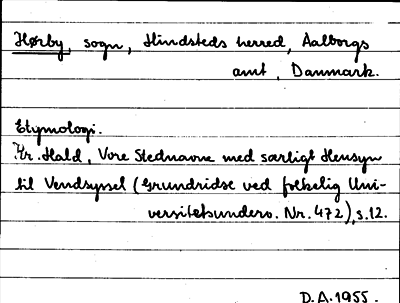 Hørby, sogn, Hindsteds herred, Aalborgs
amt, Danmark.
Etymologi.
Kr. Hald, Vore Stednavne med særligt Hensyn
til Vendsyssel (Grundridse ved folkelig Uni-
versitetsunderv. Nr. 472), s. 12.
D.A. 1955.